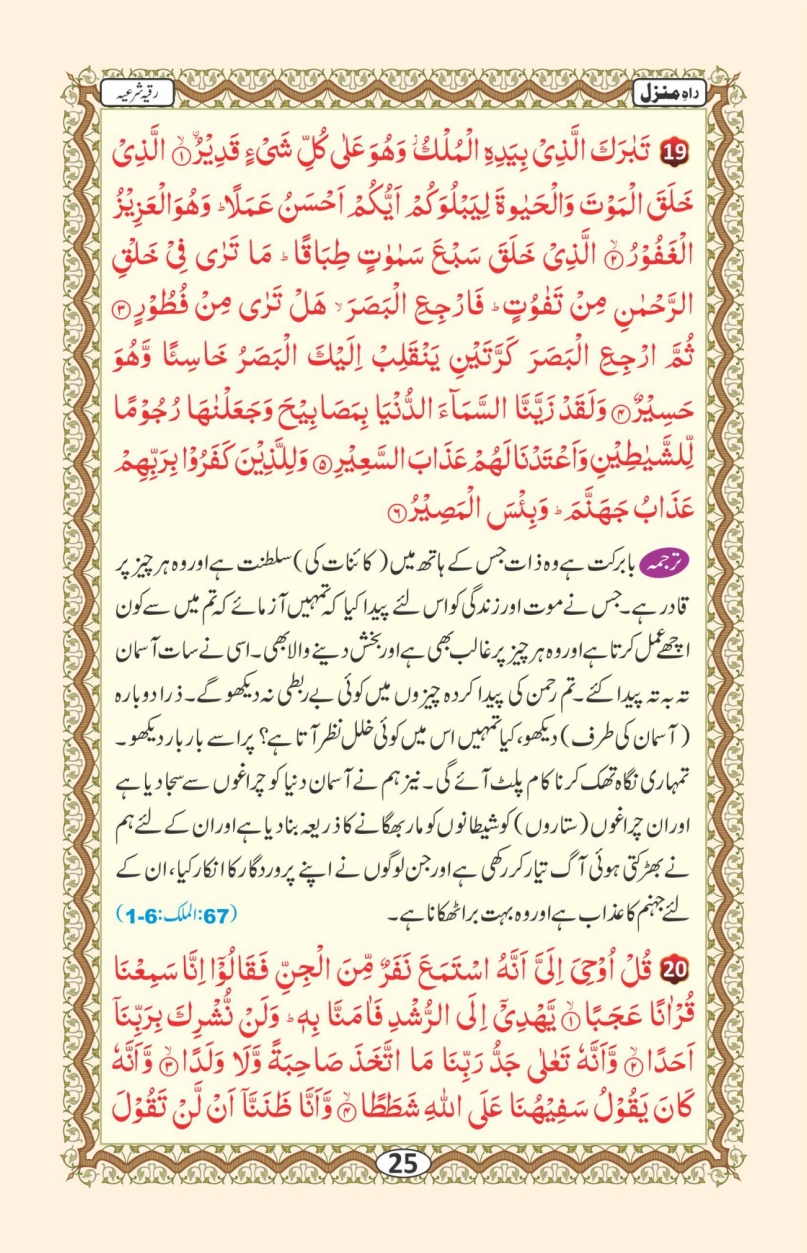 راہِ منزل
رقیہ شرعیہ
19 تَبٰرَكَ الَّذِىْ بِيَدِهِ الْمُلْكُ ز وَهُوَ عَلٰى كُلِّ شَىْءٍ قَدِيْرُ ۙ﴿۱﴾ الَّذِىْ
خَلَقَ الْمَوْتَ وَالْحَيٰوةَ لِيَبْلُوَكُمْ اَيُّكُمْ اَحْسَنُ عَمَلًا ؕ وَهُوَ الْعَزِيْزُ
الْغَفُوْرُ ۙ﴿۲﴾ الَّذِىْ خَلَقَ سَبْعَ سَمٰوٰتٍ طِبَاقًا ؕ مَا تَرٰى فِىْ خَلْقِ
الرَّحْمٰنِ مِنْ تَفٰوُتٍ ؕ فَارْجِعِ الْبَصَرَ ۙ هَلْ تَرٰى مِنْ فُطُوْرٍ ﴿۳﴾
ثُمَّ ارْجِعِ الْبَصَرَ كَرَّتَيْنِ يَنْقَلِبْ اِلَيْكَ الْبَصَرُ خَاسِئًا وَّهُوَ
حَسِيْرٌ ﴿۴﴾ وَلَقَدْ زَيَّنَّا السَّمَآءَ الدُّنْيَا بِمَصَابِيْحَ وَجَعَلْنٰهَا رُجُوْمًا
لِّلشَّيٰطِيْنِ وَاَعْتَدْنَا لَهُمْ عَذَابَ السَّعِيْرِ ﴿۵﴾ وَلِلَّذِيْنَ كَفَرُوْا بِرَبِّهِمْ
عَذَابُ جَهَنَّمَ ؕ وَبِئْسَ الْمَصِيْرُ ﴿۶﴾
ترجمہ بابرکت ہے وہ ذات جس کے ہاتھ میں (کائنات کی) سلطنت ہے اور وہ ہر چیز پر
قادر ہے۔ جس نے موت اور زندگی کو اس لئے پیدا کیا کہ تمہیں آزمائے کہ تم میں سے کون
اچھے عمل کرتا ہے اور وہ ہر چیز پر غالب بھی ہے اور بخش دینے والا بھی۔ اسی نے سات آسمان
تہ بہ تہ پیدا کئے۔ تم رحمن کی پیدا کردہ چیزوں میں کوئی بے ربطی نہ دیکھو گے۔ ذرا دوبارہ
(آسمان کی طرف) دیکھو، کیا تمہیں اس میں کوئی خلل نظر آتا ہے؟ پراسے بار بار دیکھو۔
تمہاری نگاہ تھک کر ناکام پلٹ آئے گی۔ نیز ہم نے آسمان دنیا کو چراغوں سے سجا دیا ہے
اور ان چراغوں (ستاروں) کو شیطانوں کو مار بھگانے کا ذریعہ بنا دیا ہے اور ان کے لئے ہم
نے بھڑکتی ہوئی آگ تیار کر رکھی ہے اور جن لوگوں نے اپنے پروردگار کا انکار کیا، ان کے
لئے جہنم کا عذاب ہے اور وہ بہت برا ٹھکانا ہے۔ (67:الملک:6-1)
20 قُلْ اُوْحِىَ اِلَىَّ اَنَّهُ اسْتَمَعَ نَفَرٌ مِّنَ الْجِنِّ فَقَالُوْٓا اِنَّا سَمِعْنَا
قُرْاٰنًا عَجَبًا ۙ﴿۱﴾ يَّهْدِىْٓ اِلَى الرُّشْدِ فَاٰمَنَّا بِهٖ ؕ وَلَنْ نُّشْرِكَ بِرَبِّنَآ
اَحَدًا ۙ﴿۲﴾ وَّاَنَّهٗ تَعٰلٰى جَدُّ رَبِّنَا مَا اتَّخَذَ صَاحِبَةً وَّلَا وَلَدًا ۙ﴿۳﴾ وَّاَنَّهٗ
كَانَ يَقُوْلُ سَفِيْهُنَا عَلَى اللهِ شَطَطًا ۙ﴿۴﴾ وَّاَنَّا ظَنَنَّآ اَنْ لَّنْ تَقُوْلَ
25